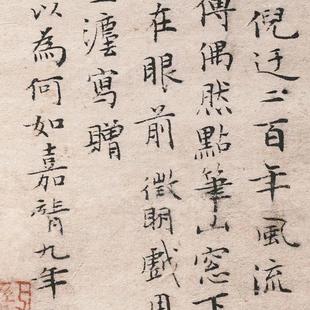 倪迂二百年風流
傳偶然點筆山窓下
在眼前徵明戲用
澐寫贈
以為何如嘉靖九年